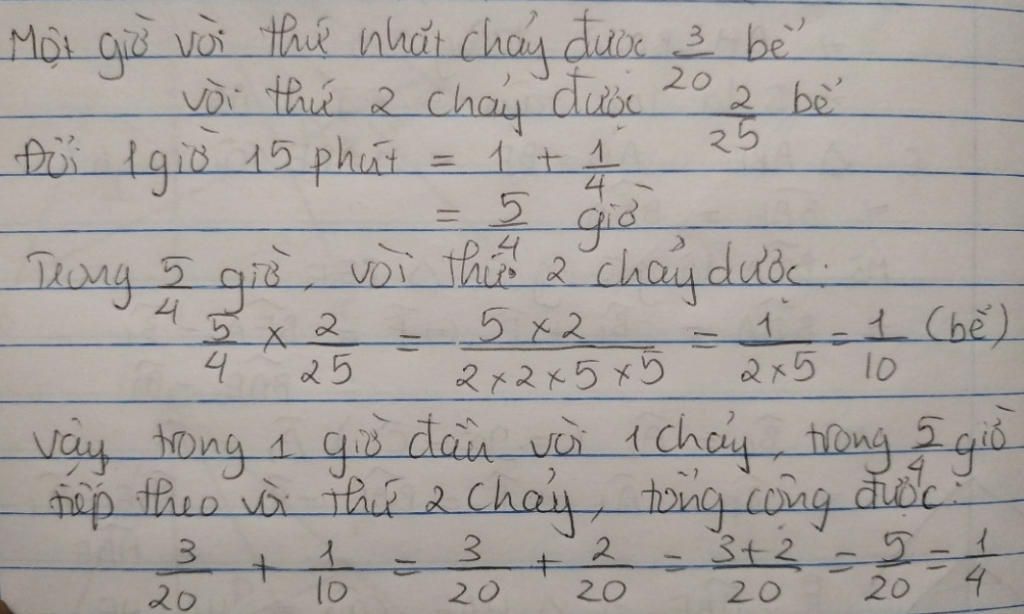 Một giờ vòi thứ nhất chảy được 3/20 bể
vòi thứ 2 chảy được 2/25 bể
Đổi 1 giờ 15 phút = 1 + 1/4
= 5/4 giờ
Trong 5/4 giờ, vòi thứ 2 chảy được:
5/4 × 2/25 = (5 × 2)/(2 × 2 × 5 × 5) = 1/(2 × 5) = 1/10 (bể)
vậy trong 1 giờ đầu vòi 1 chảy, trong 5/4 giờ
tiếp theo vòi thứ 2 chảy, tổng cộng được:
3/20 + 1/10 = 3/20 + 2/20 = (3+2)/20 = 5/20 = 1/4